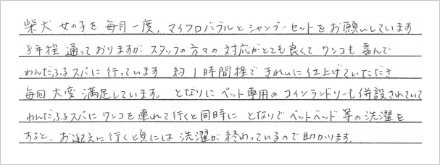 柴犬 女の子を毎月一度、マイクロバブルとシャンプーセットをお願いしています
8年程通っておりますが スタッフの方々の対応がとても良くて ワンコも喜んで
わんだふるスパに行っています 約1時間程できれいに仕上げていただき
毎回大変満足しています。となりにペット専用のコインランドリーも併設されていて
わんだふるスパにワンコを連れて行くと同時に となりでペットベッド等の洗濯を
すると、お迎えに行く頃には洗濯が終わっているので助かります。